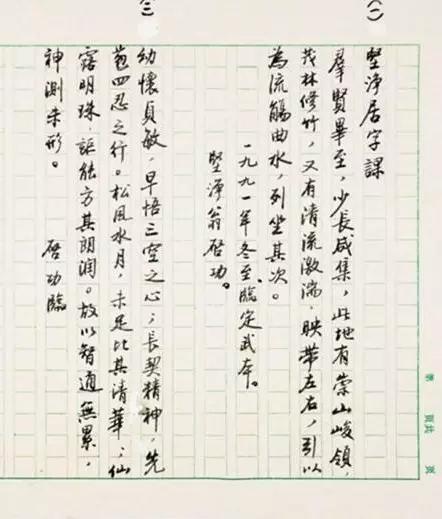 (一)
堅淨居字課
羣賢畢至，少長咸集，此地有崇山峻領，
茂林修竹，又有清流激湍，映帶左右，引以
為流觴曲水，列坐其次。
一九九一年冬至，臨定武本。
堅淨翁啓功。
(二)
幼懷貞敏，早悟三空之心；長契神情，先
苞四忍之行。松風水月，未足比其清華；仙
露明珠，詎能方其朗潤。故以智通無累，
神測未形。 啓功臨
第 頁共 頁